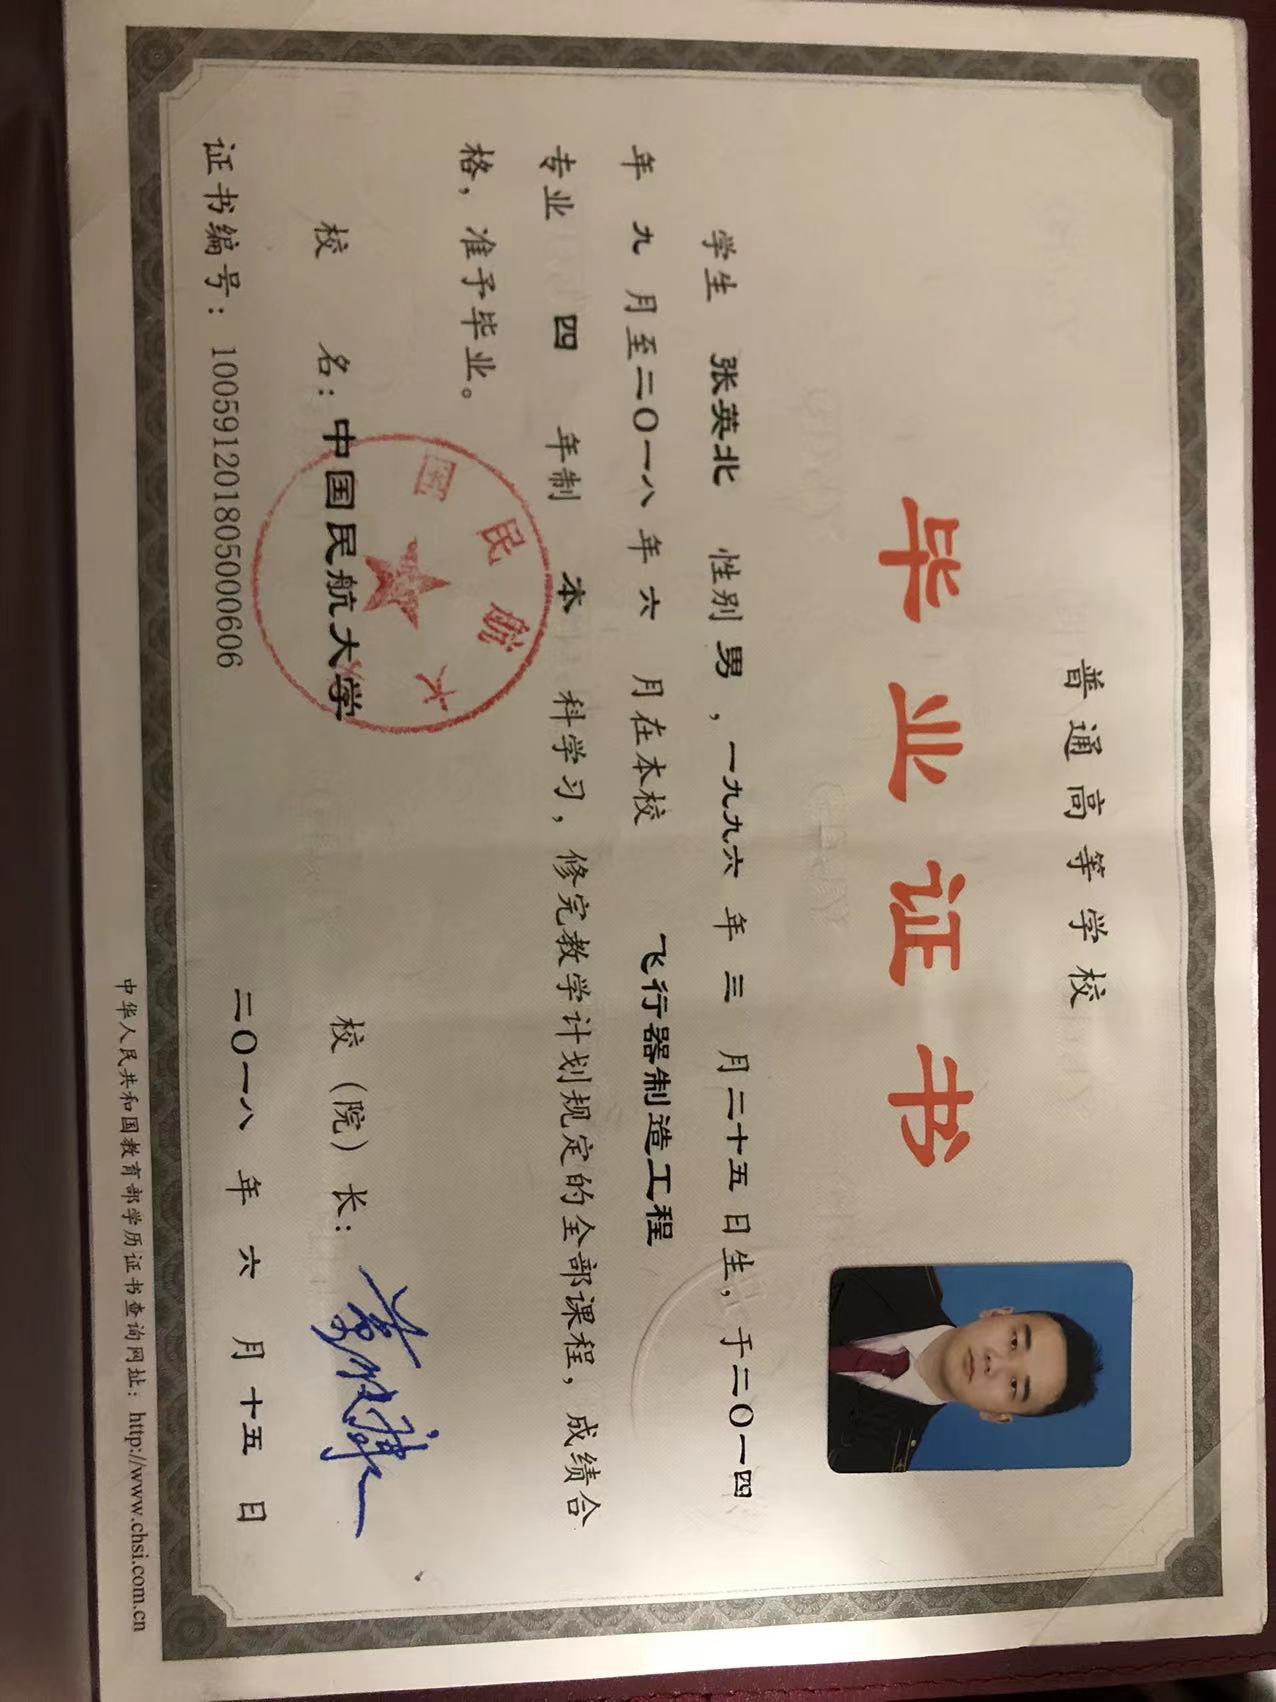 普通高等学校
毕业证书
学生 张英北 性别 男，一九九六 年 三 月 二十五 日生，于二〇一四
年 九 月至二〇一八 年 六 月在本校 飞行器制造工程
专业 四 年制 本 科学习，修完教学计划规定的全部课程，成绩合
格，准予毕业。
校 名：中国民航大学 校（院）长：
证书编号：100591201805000606 二〇一八 年 六 月 十五 日
中华人民共和国教育部学历证书查询网址：http://www.chsi.com.cn